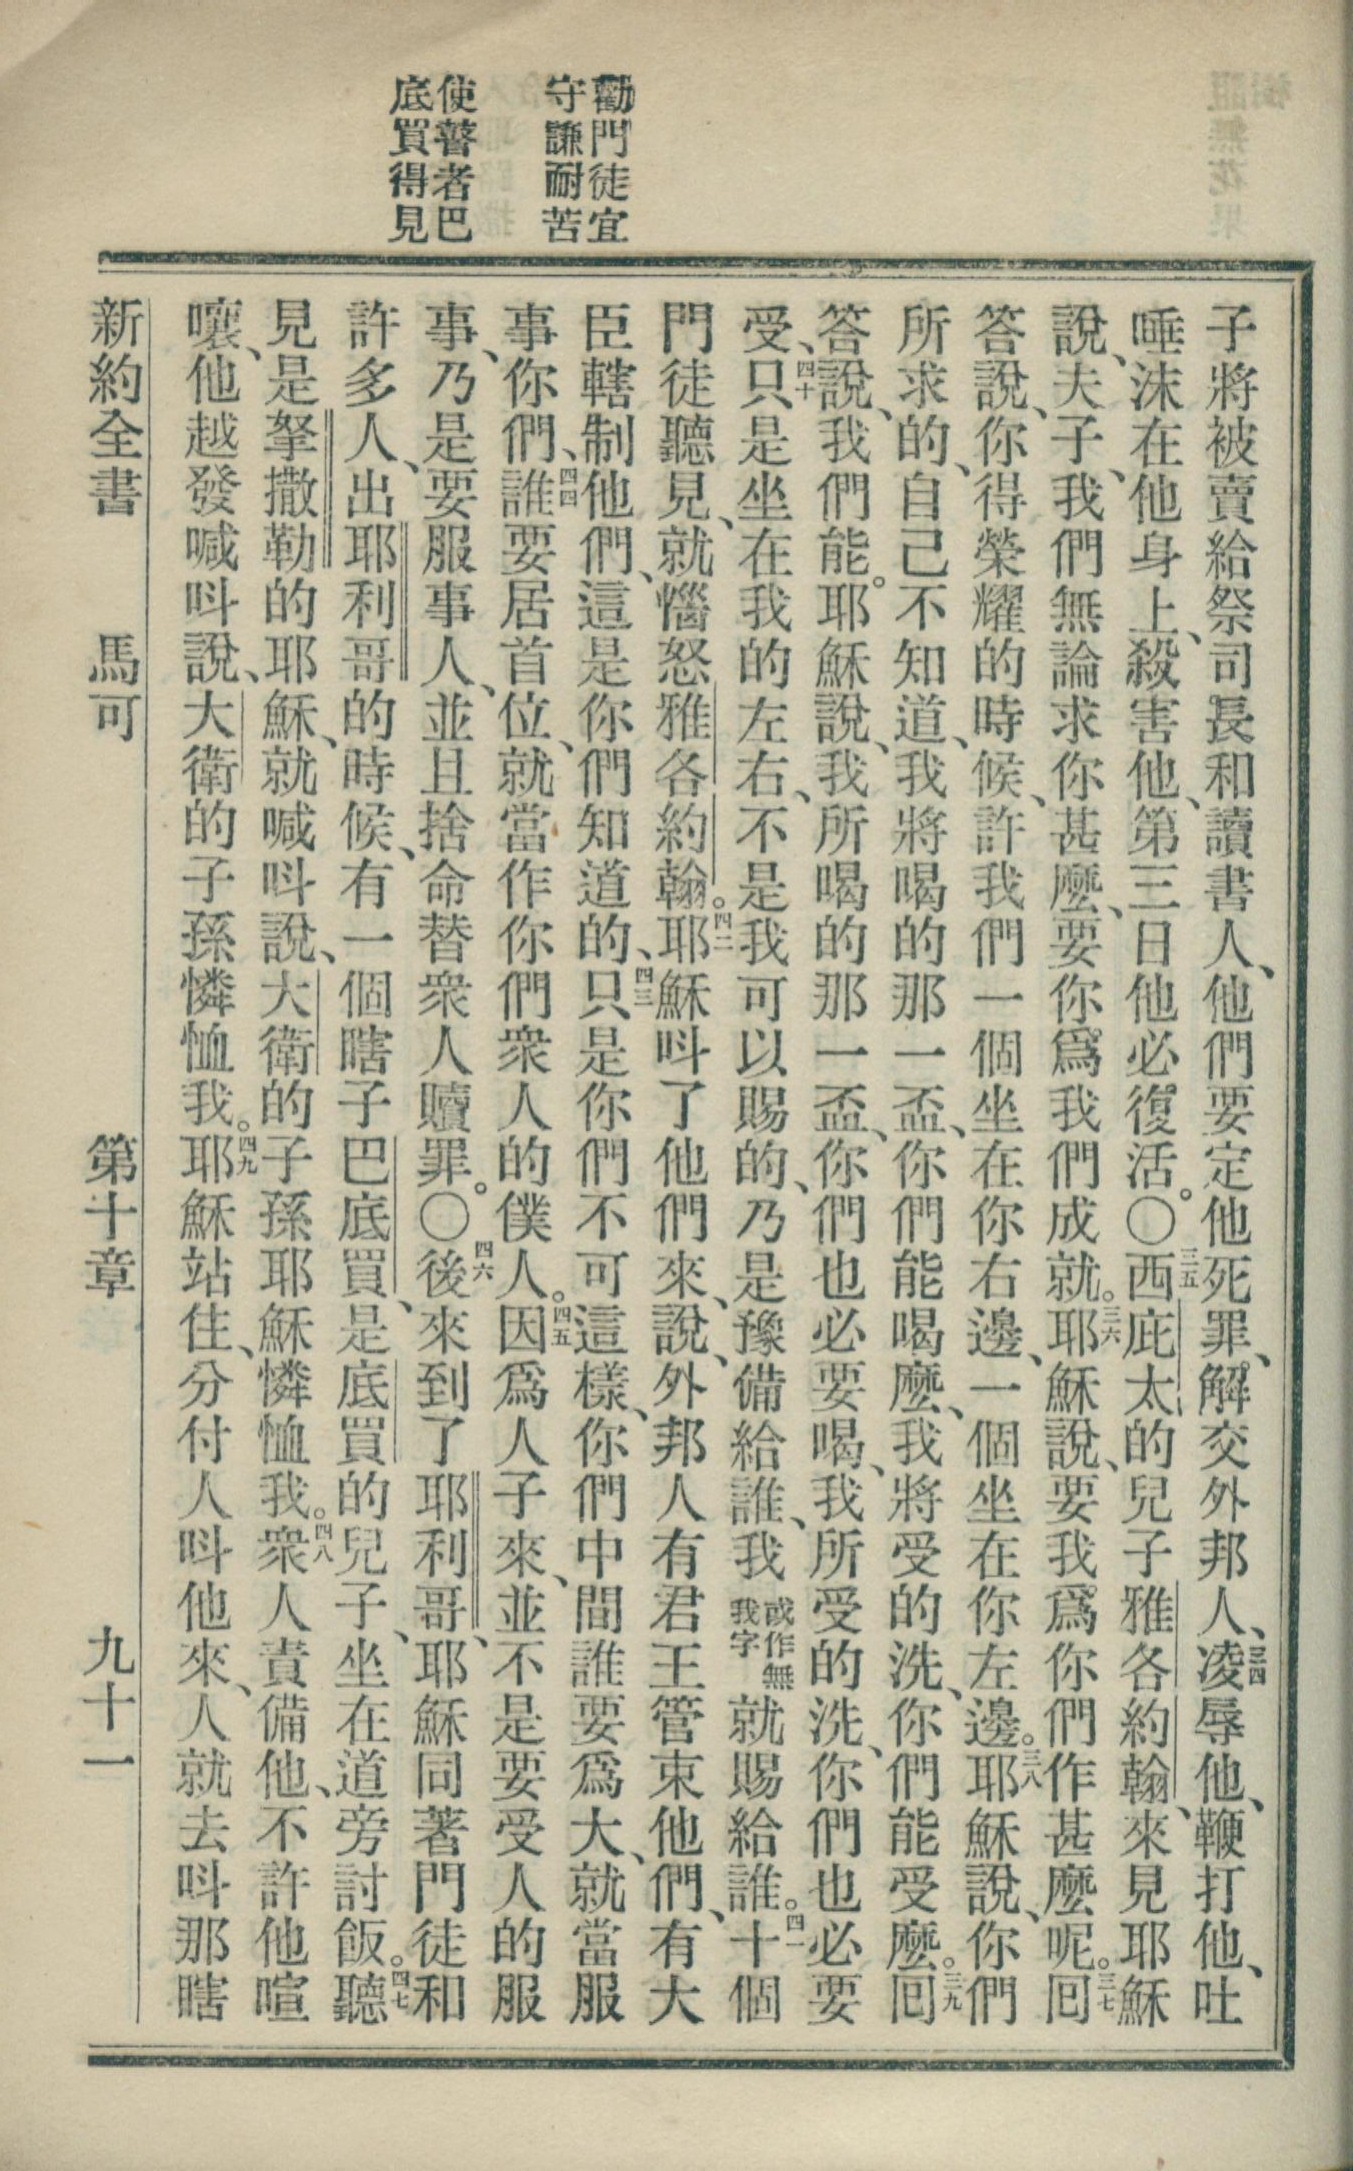 勸門徒宜
守謙耐苦
使瞽者巴
底買得見
子將被賣給祭司長和讀書人、他們要定他死罪、解交外邦人、三四凌辱他、鞭打他、吐
唾沫在他身上、殺害他、第三日他必復活。〇三五西庇太的兒子雅各約翰、來見耶穌
說、夫子、我們無論求你甚麼、要你爲我們成就。三六耶穌說、要我爲你們作甚麼呢。三七囘
答說、你得榮耀的時候、許我們一個坐在你右邊、一個坐在你左邊。三八耶穌說、你們
所求的、自己不知道、我將喝的那一盃、你們能喝麼、我將受的洗、你們能受麼。三九囘
答說、我們能。耶穌說、我所喝的那一盃、你們也必要喝、我所受的洗、你們也必要
受、四十只是坐在我的左右、不是我可以賜的、乃是豫備給誰、我或作無我字就賜給誰。四一十個
門徒聽見、就惱怒雅各約翰。四二耶穌呌了他們來、說、外邦人有君王管束他們、有大
臣轄制他們、這是你們知道的、四三只是你們不可這樣、你們中間誰要爲大、就當服
事你們、四四誰要居首位、就當作你們衆人的僕人。四五因爲人子來、並不是要受人的服
事、乃是要服事人、並且捨命替衆人贖罪。〇四六後來到了耶利哥、耶穌同著門徒和
許多人、出耶利哥的時候、有一個瞎子巴底買、是底買的兒子、坐在道旁討飯。四七聽
見是拏撒勒的耶穌、就喊呌說、大衛的子孫耶穌憐恤我。四八衆人責備他、不許他喧
嚷、他越發喊呌說、大衛的子孫憐恤我。四九耶穌站住、分付人呌他來、人就去呌那瞎
新約全書 馬可 第十章 九十一